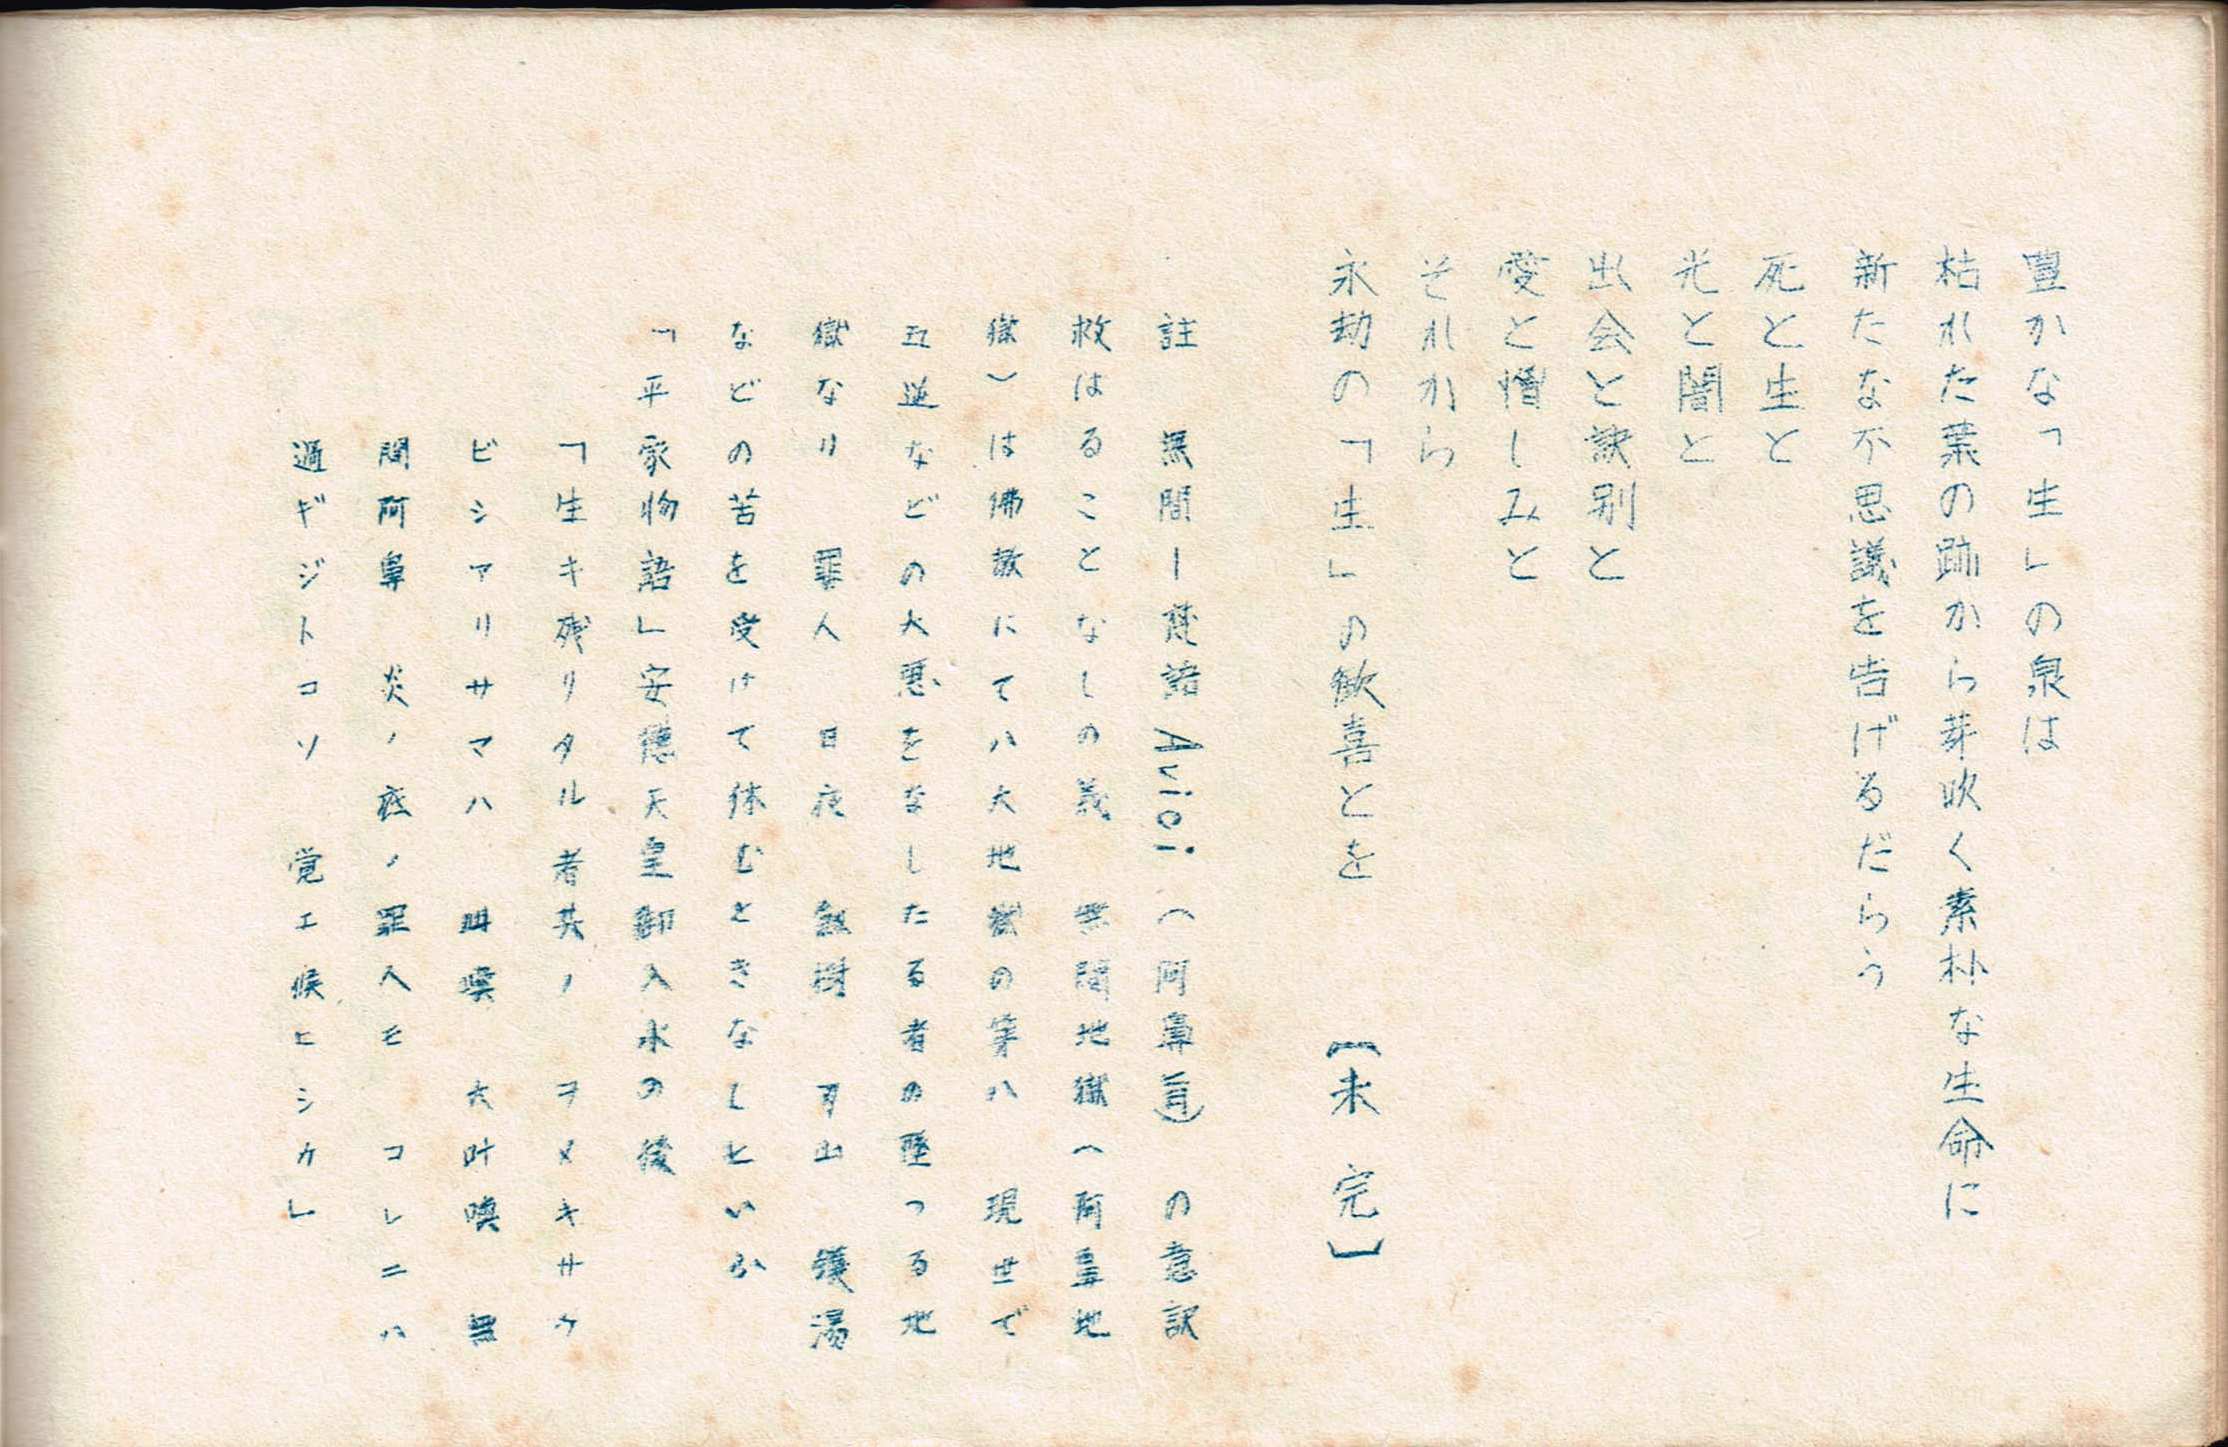 豊かな「生」の泉は
枯れた葉の跡から芽吹く素朴な生命に
新たな不思議を告げるだらう
死と生と
光と闇と
出会と訣別と
愛と憎しみと
それから
永劫の「生」の歓喜とを 【未完】
註 無間ー梵語 Avici（阿鼻旨）の意訳
救はることなしの義 無間地獄（阿鼻地
獄）は佛教にて八大地獄の第八 現世で
五逆などの大悪をなしたる者の墜つる地
獄なり 罪人 日夜 劔樹 刀山 鑊湯
などの苦を受けて休むときなしといふ
「平家物語」安徳天皇御入水の後
「生キ残リタル者共ノ ヲメキサケ
ビシアリサマハ 叫喚 大叫喚 無
間阿鼻 炎ノ底ノ罪人モ コレニハ
過ギジトコソ 覚エ候ヒシカ」